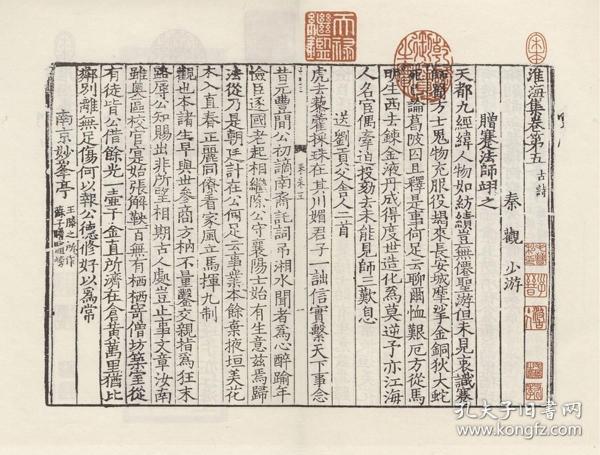 淮海集卷第五 古詩
秦觀 少游
贈蹇法師翊之
天都九經緯人物如紡績豈無僊聖游但未見衷識蹇
師蜀方士鬼物充服役朅來長安城摩挲金銅狄大蛇
死已論葛陂囚且釋是事何足云聊爾恤艱厄方從馬
明生西去鍊金液丹成得度世造化爲莫逆予亦江海
人名宦偶牽迫投劾去未能見師三歎息
送劉貢父舍人二首
虎去藜藿採珠在其川媚君子一詘信實繫天下事念
昔元豐間公初謫南裔託詞弔湘水聞者爲心醉踰年
儉臣逐國老起相繼除公守襄陽士始有生意茲焉歸
法從乃是朝廷計在公何足云事業本餘棄掖垣美花
木入直春正麗同僚看家風立馬揮九制
觀也本諸生早與世參商方枘不量鑿交親指爲狂末
路辱公知賜出非所望相期古人處豈止事文章汝南
雖奧區校官寔始張解鞅百無有栖栖寄僧坊築室從
有徒皆公借餘光一壷千金直所濟在倉黃萬里猶比
鄰別離無足傷何以報公德修好以爲常
南京妙峯亭 王勝之所作
蘇子瞻題榜
孔夫子旧书网
www.kongfz.com